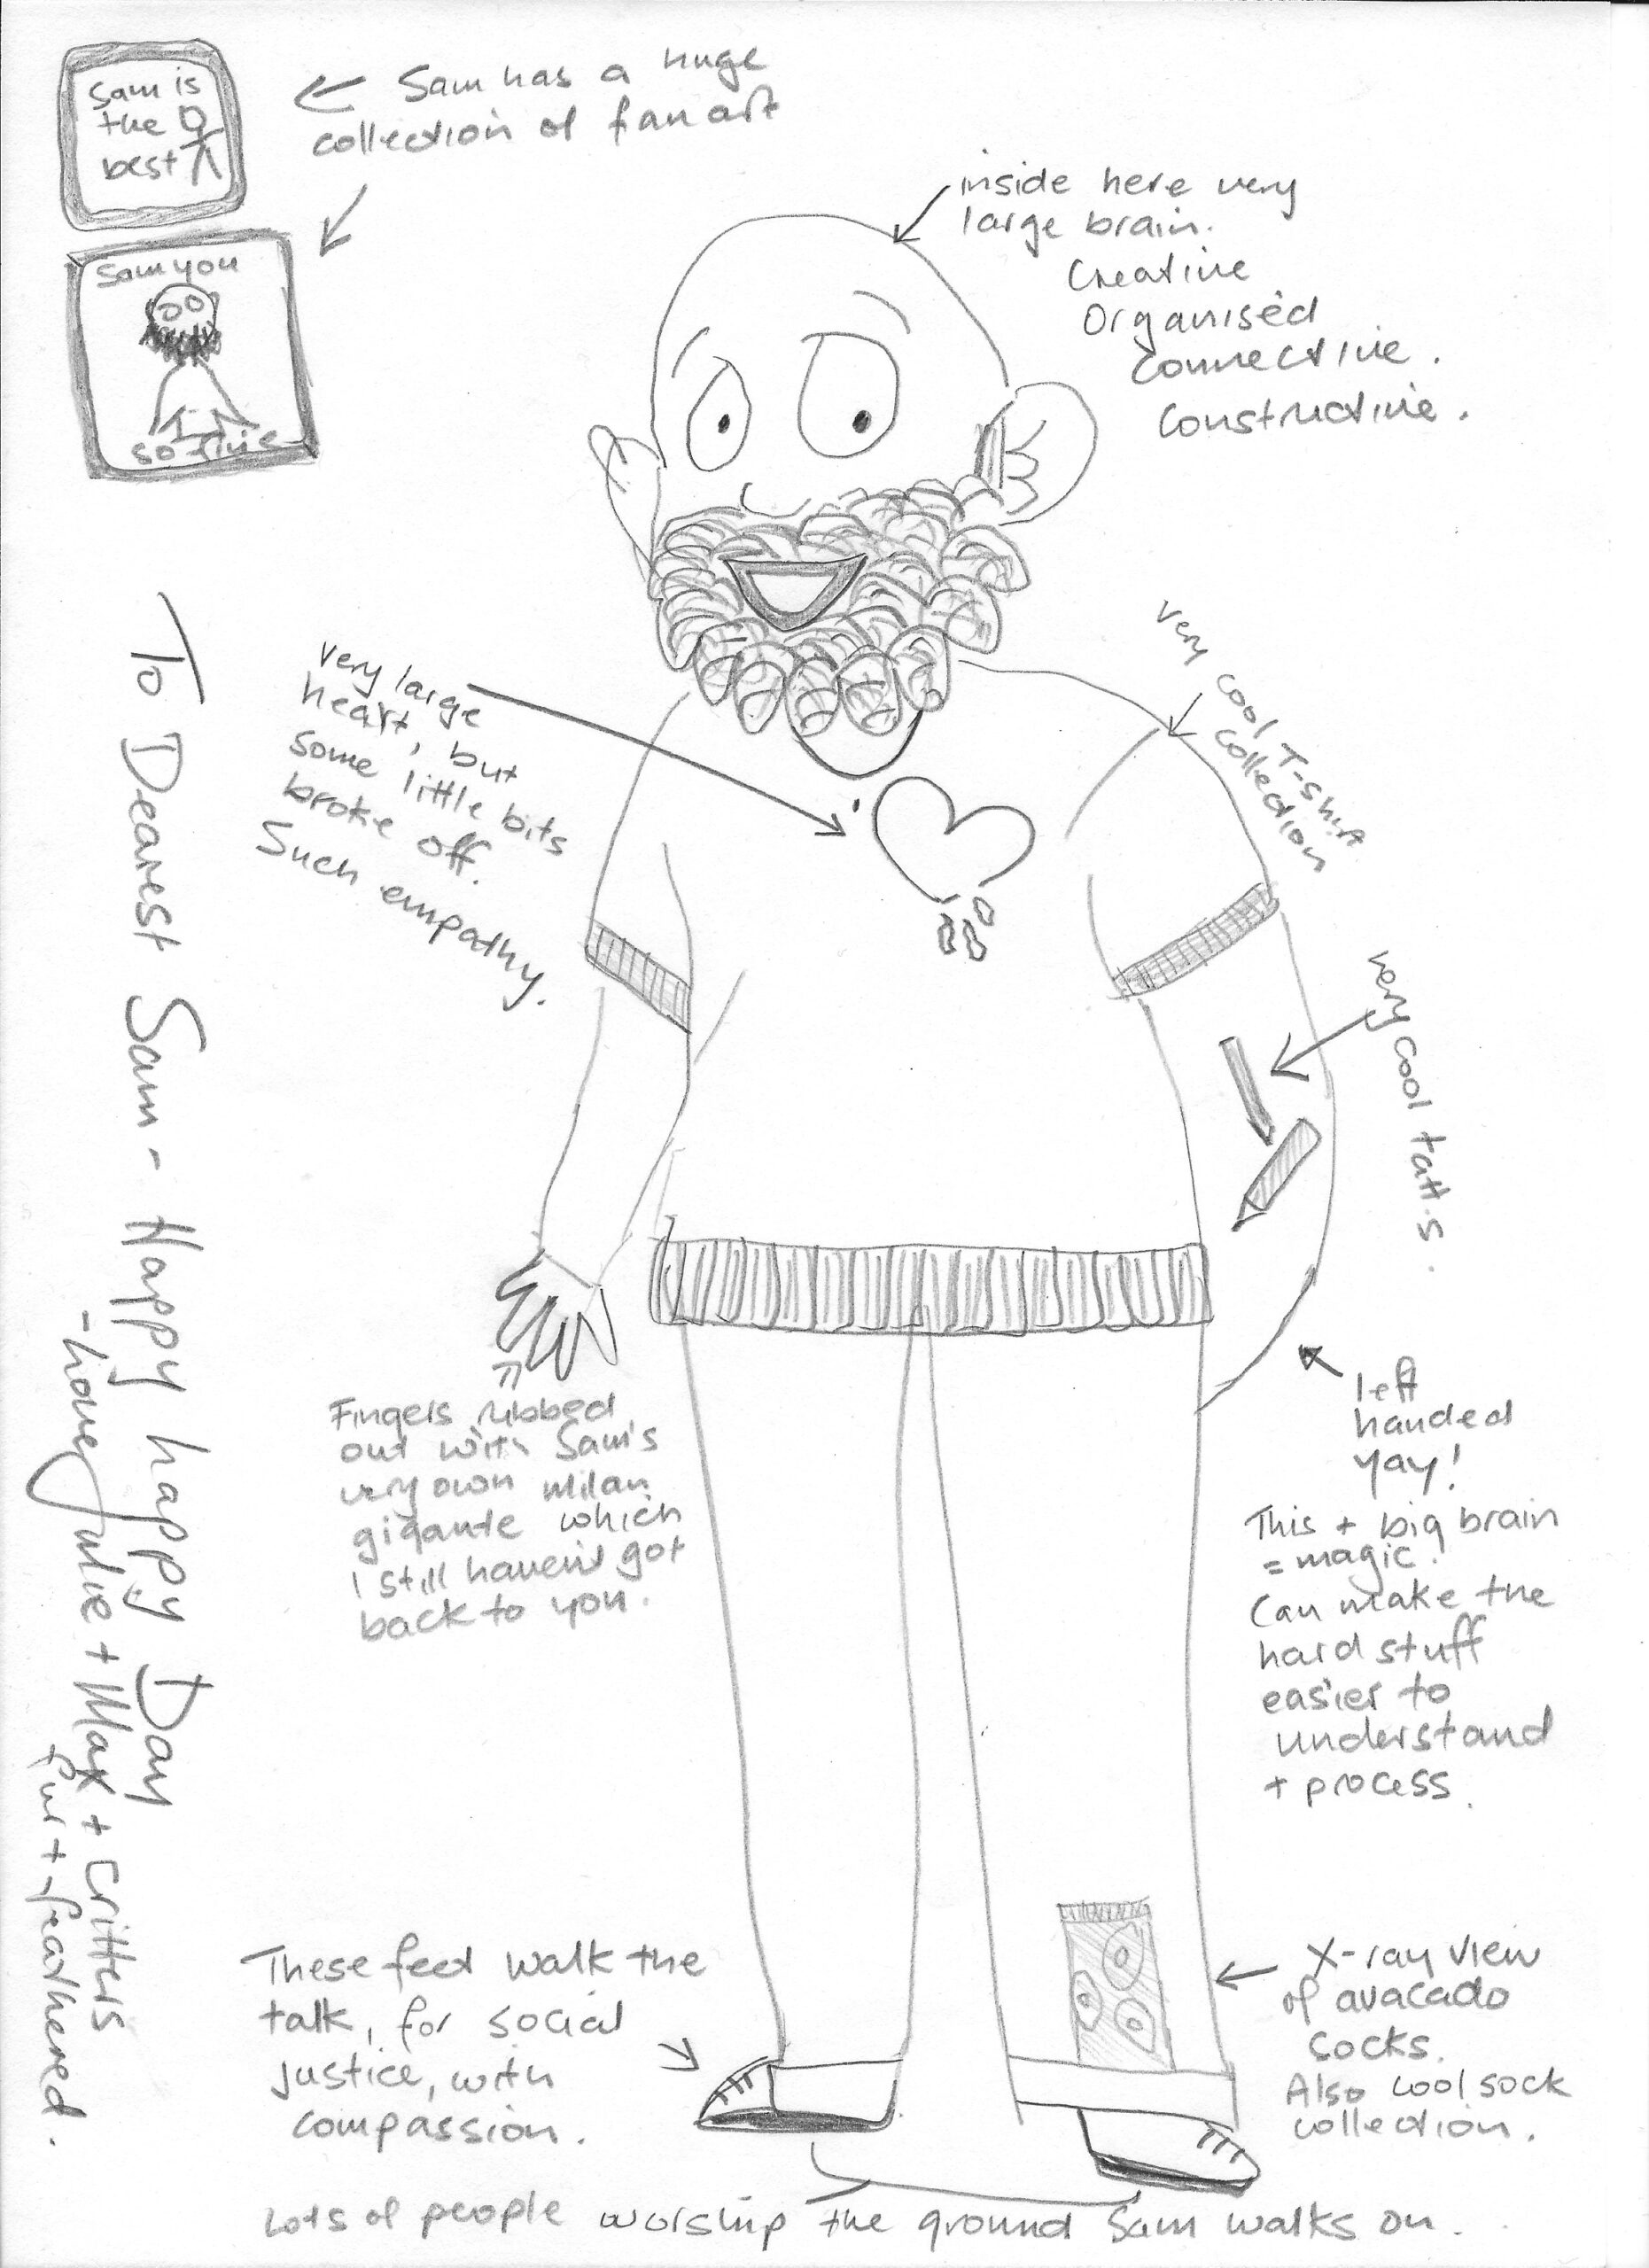 Sam is
the
best
Sam has a huge
collection of fan art
Sam you
so fine
inside here very
large brain.
Creative
Organised
Connective.
Constructive.
very large
heart, but
some little bits
broke off.
Such empathy.
very cool T-shirt
collection
very cool tatts.
left
handed
yay!
This + big brain
= magic!
Can make the
hard stuff
easier to
understand
+ process.
Fingers rubbed
out with Sam's
very own milan
gigante which
I still haven't got
back to you.
To Dearest Sam - Happy happy Day
- Love Julie + Max + critters
fur + feathered.
These feet walk the
talk, for social
justice, with
compassion.
X-ray view
of avacado
socks.
Also cool sock
collection.
Lots of people worship the ground Sam walks on.